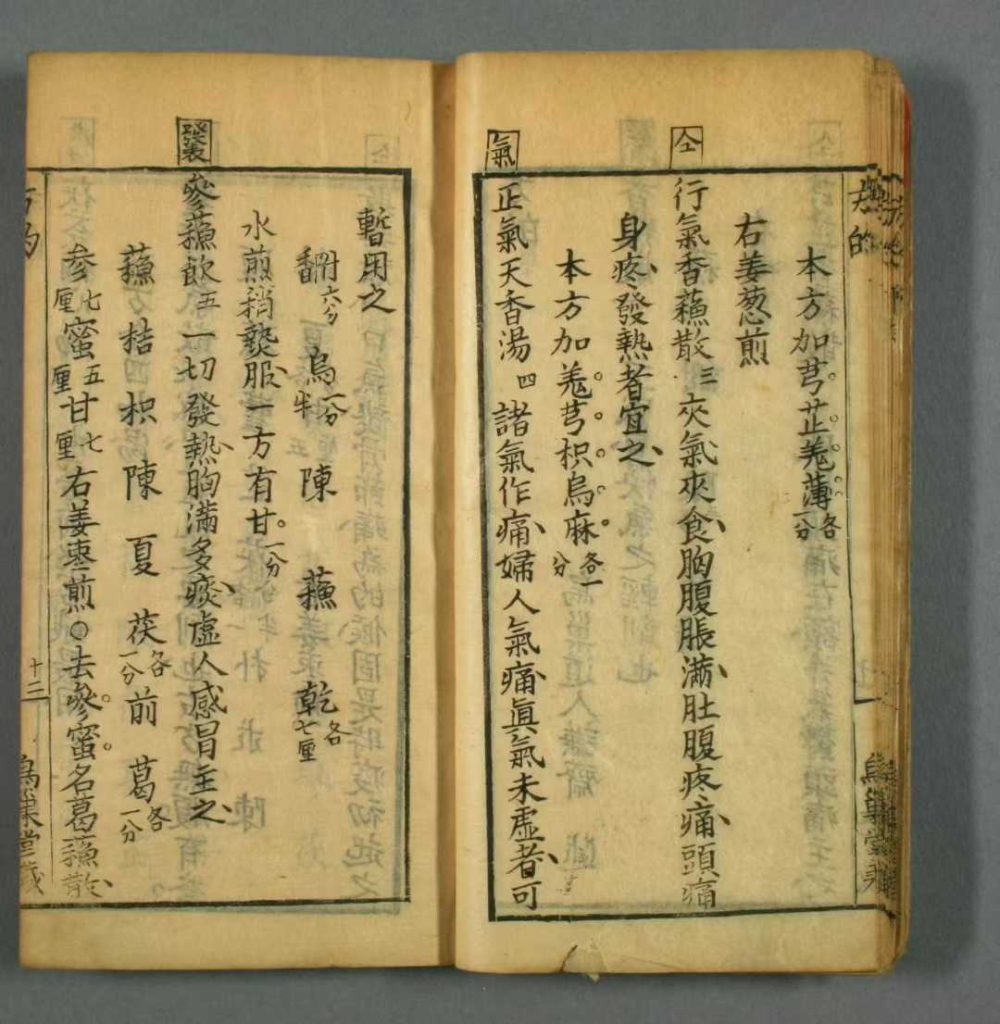 方的
本方加芎芷羗薄各一分
右姜葱煎
仝
行氣香蘓散三夾氣夾食胸腹脹滿肚腹疼痛頭痛
身疼發熱者宜之
本方加羗芎枳烏麻各一分
氣
正氣天香湯四諸氣作痛婦人氣痛眞氣未虛者可
暫用之
香附六分烏一分半陳蘓乾各七厘
水煎稍𤍠服一方有甘一分
發表
參蘓飲五一切發熱胸滿多痰虛人感冒主之
蘓桔枳陳夏茯各一分前葛各一分
参七厘蜜五厘甘七厘右姜枣煎○去參蜜名葛蘓散
方的
十三
烏巢堂藏